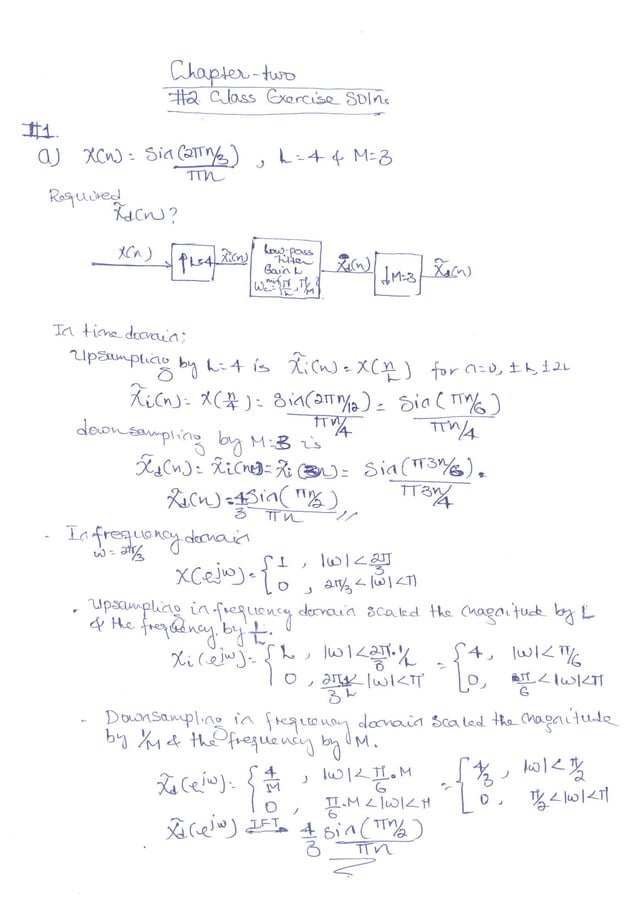 Chapter-two
#2 Class Exercise Soln:
#1.
a) X(n) = Sin(2πn/3)/πn , L=4 & M=3
Required
X̃d(n)?
X(n) ↑L=4 X̃i(n) Low-pass Filter Gain L Wc=min(π/L, π/M) X̃i(n) ↓M=3 X̃d(n)
In time domain:
Upsampling by L=4 is X̃i(n) = X(n/L) for n=0, ±L, ±2L
X̃i(n) = X(n/4) = Sin(2πn/12)/πn/4 = Sin(πn/6)/πn/4
downsampling by M=3 is
X̃d(n) = X̃i(nM) = X̃i(3n) = Sin(π3n/6)/π3n/4.
X̃d(n) = 4/3 Sin(πn/2)/πn //
- In frequency domain
w = 2π/3
X(e^jw) = { 1 , |w| < 2π/3
0 , 2π/3 < |w| < π
. Upsampling in frequency domain scaled the magnitude by L
& the frequency by 1/L.
Xi(e^jw) = { L , |w| < 2π/3 · 1/L = { 4, |w| < π/6
0 , 2π/3 1/L < |w| < π 0, π/6 < |w| < π
- Downsampling in frequency domain scaled the magnitude
by 1/M & the frequency by M.
X̃d(e^jw) = { 4/M , |w| < π/6 · M = { 4/3 , |w| < π/2
0 , π/6 · M < |w| < π 0 , π/2 < |w| < π
X̃d(e^jw) IFT→ 4/3 Sin(πn/2)/πn